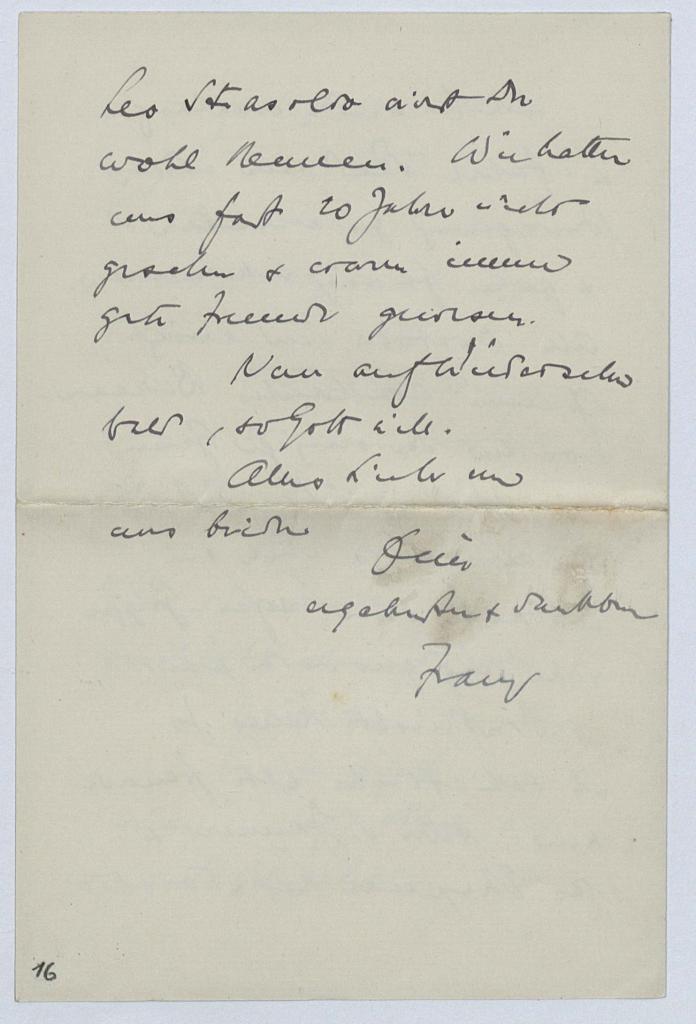 Leo Strasoldo wirst Du
wohl kennen. Wir hatten
uns fast 20 Jahre nicht
gesehen & waren immer
gute Freunde gewesen.
Nun auf Wiedersehn
bald, so Gott will.
Alles Liebe von
uns beiden
Dein
ergebenster & dankbarer
Franz
16